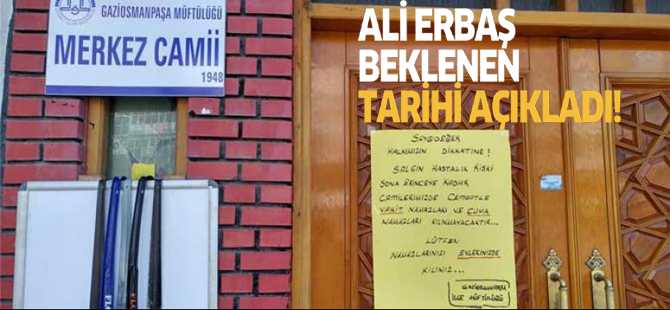 GAZİOSMANPAŞA MÜFTÜLÜĞÜ
MERKEZ CAMİİ
1948
ALİ ERBAŞ
BEKLENEN
TARİHİ AÇIKLADI!
HALKIMIZIN DİKKATİNE!
SALGIN HASTALIK RİSKİ
SONA ERİNCEYE KADAR
CAMİLERİMİZDE CEMAATLE
VAKİT NAMAZLARI VE CUMA
NAMAZLARI KILINMAYACAKTIR...
LÜTFEN
NAMAZLARINIZI EVLERİNİZDE
KILINIZ...
GAZİOSMANPAŞA
İLÇE MÜFTÜLÜĞÜ